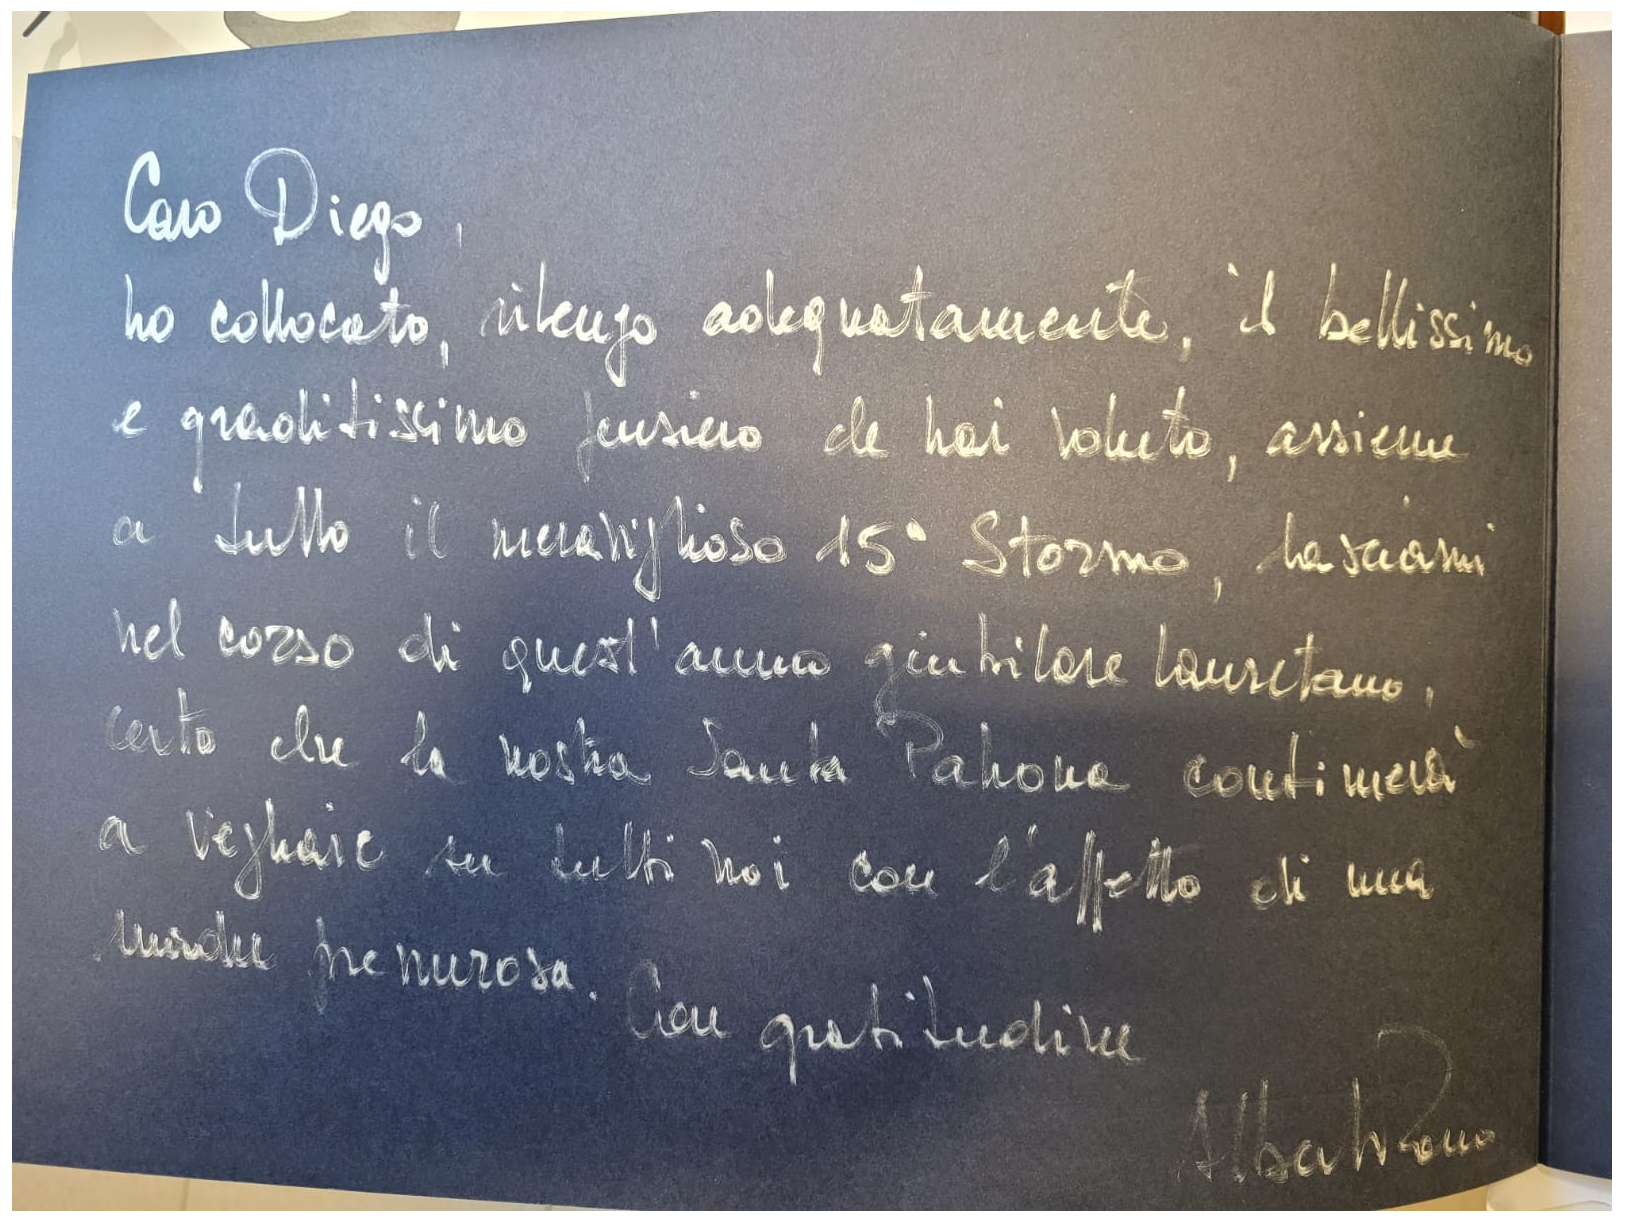 Caro Diego,
ho collocato, ritengo adeguatamente, il bellissimo
e graditissimo pensiero che hai voluto, assieme
a tutto il meraviglioso 15° Stormo, lasciarmi
nel corso di quest'anno giubilare lauretano,
certo che la nostra Santa Patrona continuerà
a vegliare su tutti noi con l'affetto di una
madre premurosa.
Con gratitudine
Alberto